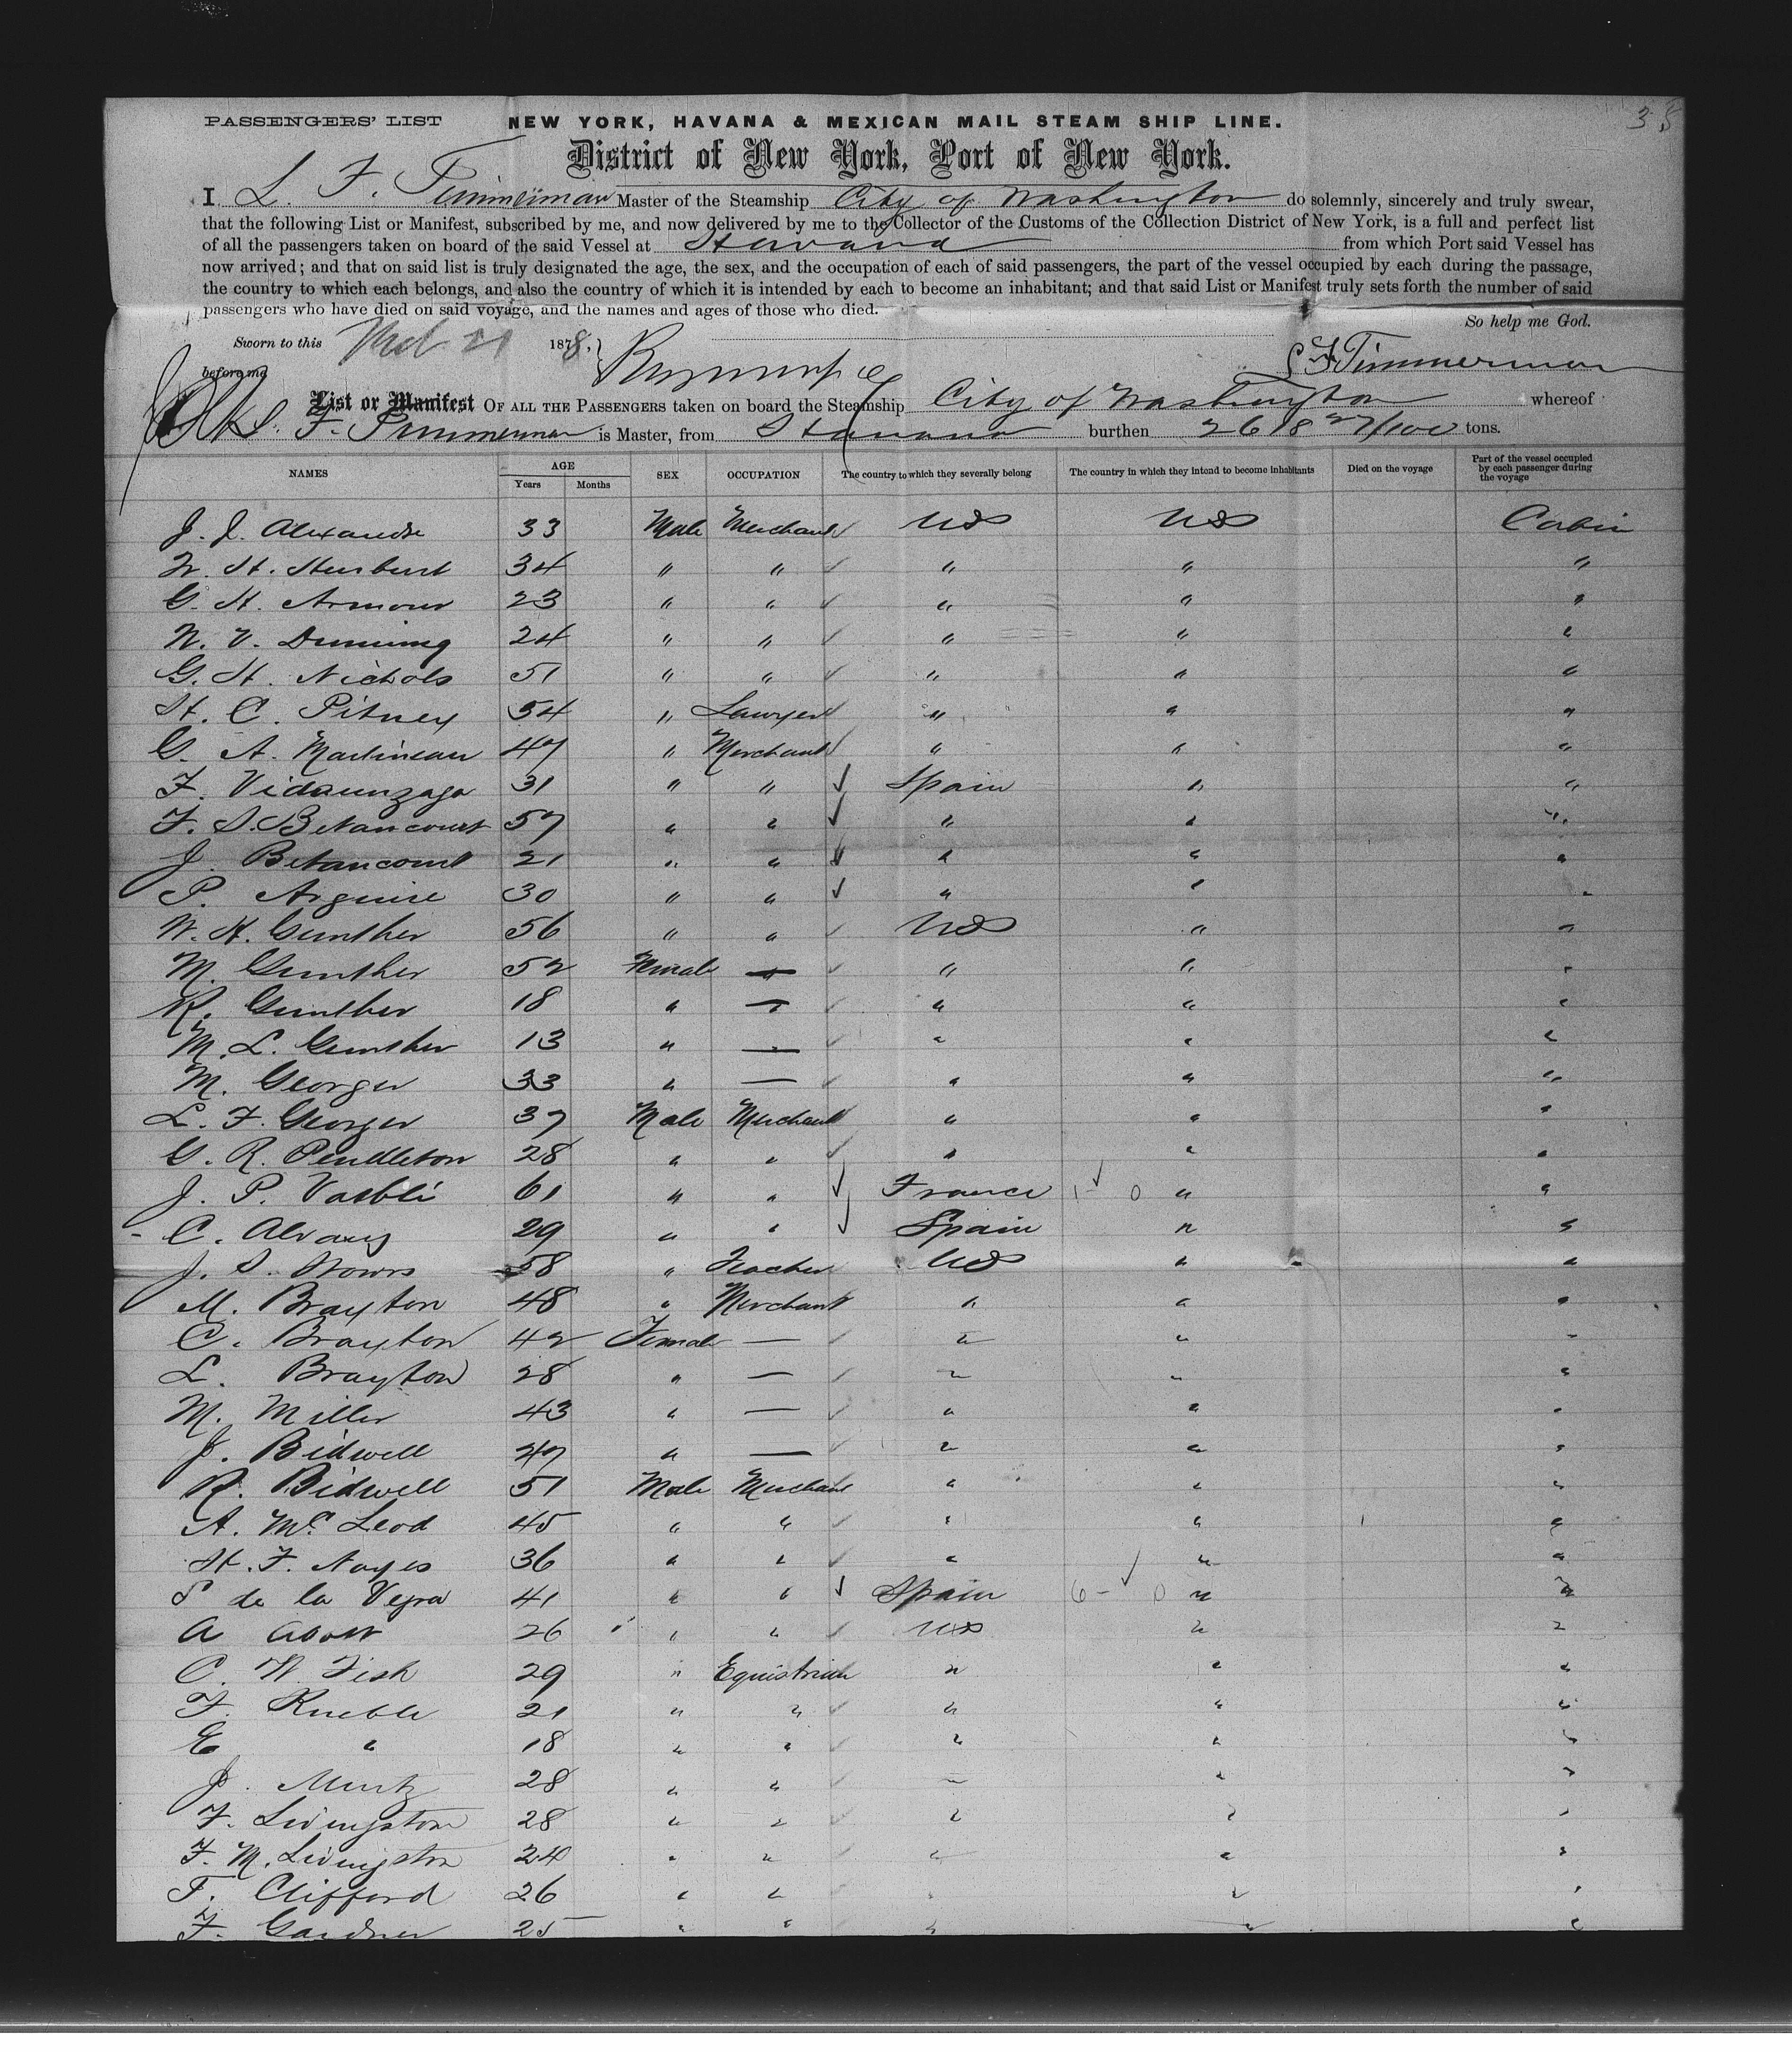 PASSENGERS' LIST NEW YORK, HAVANA & MEXICAN MAIL STEAM SHIP LINE. 38
District of New York, Port of New York.
I L. F. Timmerman Master of the Steamship City of Washington do solemnly, sincerely and truly swear,
that the following List or Manifest, subscribed by me, and now delivered by me to the Collector of the Customs of the Collection District of New York, is a full and perfect list
of all the passengers taken on board of the said Vessel at Havana from which Port said Vessel has
now arrived; and that on said list is truly designated the age, the sex, and the occupation of each of said passengers, the part of the vessel occupied by each during the passage,
the country to which each belongs, and also the country of which it is intended by each to become an inhabitant; and that said List or Manifest truly sets forth the number of said
passengers who have died on said voyage, and the names and ages of those who died.
So help me God.
Sworn to this Mch 21 1878,
before me L F Timmerman
List or Manifest OF ALL THE PASSENGERS taken on board the Steamship City of Washington whereof
L. F. Timmerman is Master, from Havana burthen 2618 27/100 tons.
NAMES AGE Years Months SEX OCCUPATION The country to which they severally belong The country in which they intend to become inhabitants Died on the voyage Part of the vessel occupied by each passenger during the voyage
J. J. Alexandre 33 Male Merchant US US Cabin
W. H. Hurburt 34 " " " " "
G. H. Armour 23 " " " " "
N. V. Dunning 24 " " " " "
G. H. Nichols 51 " " " " "
H. C. Pitney 54 " Lawyer " " "
G. A. Martineau 47 " Merchant " " "
F. Vidaunzaga 31 " " Spain " "
F. S. Betancourt 57 " " " " "
J. Betancourt 21 " " " " "
P. Arguire 30 " " " " "
W. H. Gunther 56 " " US " "
M. Gunther 52 Female — " " "
R. Gunther 18 " — " " "
M. L. Gunther 13 " — " " "
M. Georger 33 " — " " "
L. F. Georger 37 Male Merchant " " "
G. R. Pendleton 28 " " " " "
J. P. 61 " " France 1 - 0 " "
C. 29 " " Spain " "
J. S. 58 " Teacher US " "
M. Brayton 48 " Merchant " " "
C. Brayton 42 Female — " " "
L. Brayton 28 " — " " "
M. Miller 43 " — " " "
J. Bidwell 47 " — " " "
R. Bidwell 51 Male Merchant " " "
A. McLeod 45 " " " " "
H. F. Noyes 36 " " " " "
P de la Vega 41 " " Spain 6 - 0 " "
A 26 " " US " "
C. W. Fish 29 " Equistrian " " "
F. Rueble 21 " " " " "
E " 18 " " " " "
J. Mintz 28 " " " " "
F. Livingston 28 " " " " "
F. M. Livingston 24 " " " " "
T. Clifford 26 " " " " "
F. Gardner 25 " " " " "